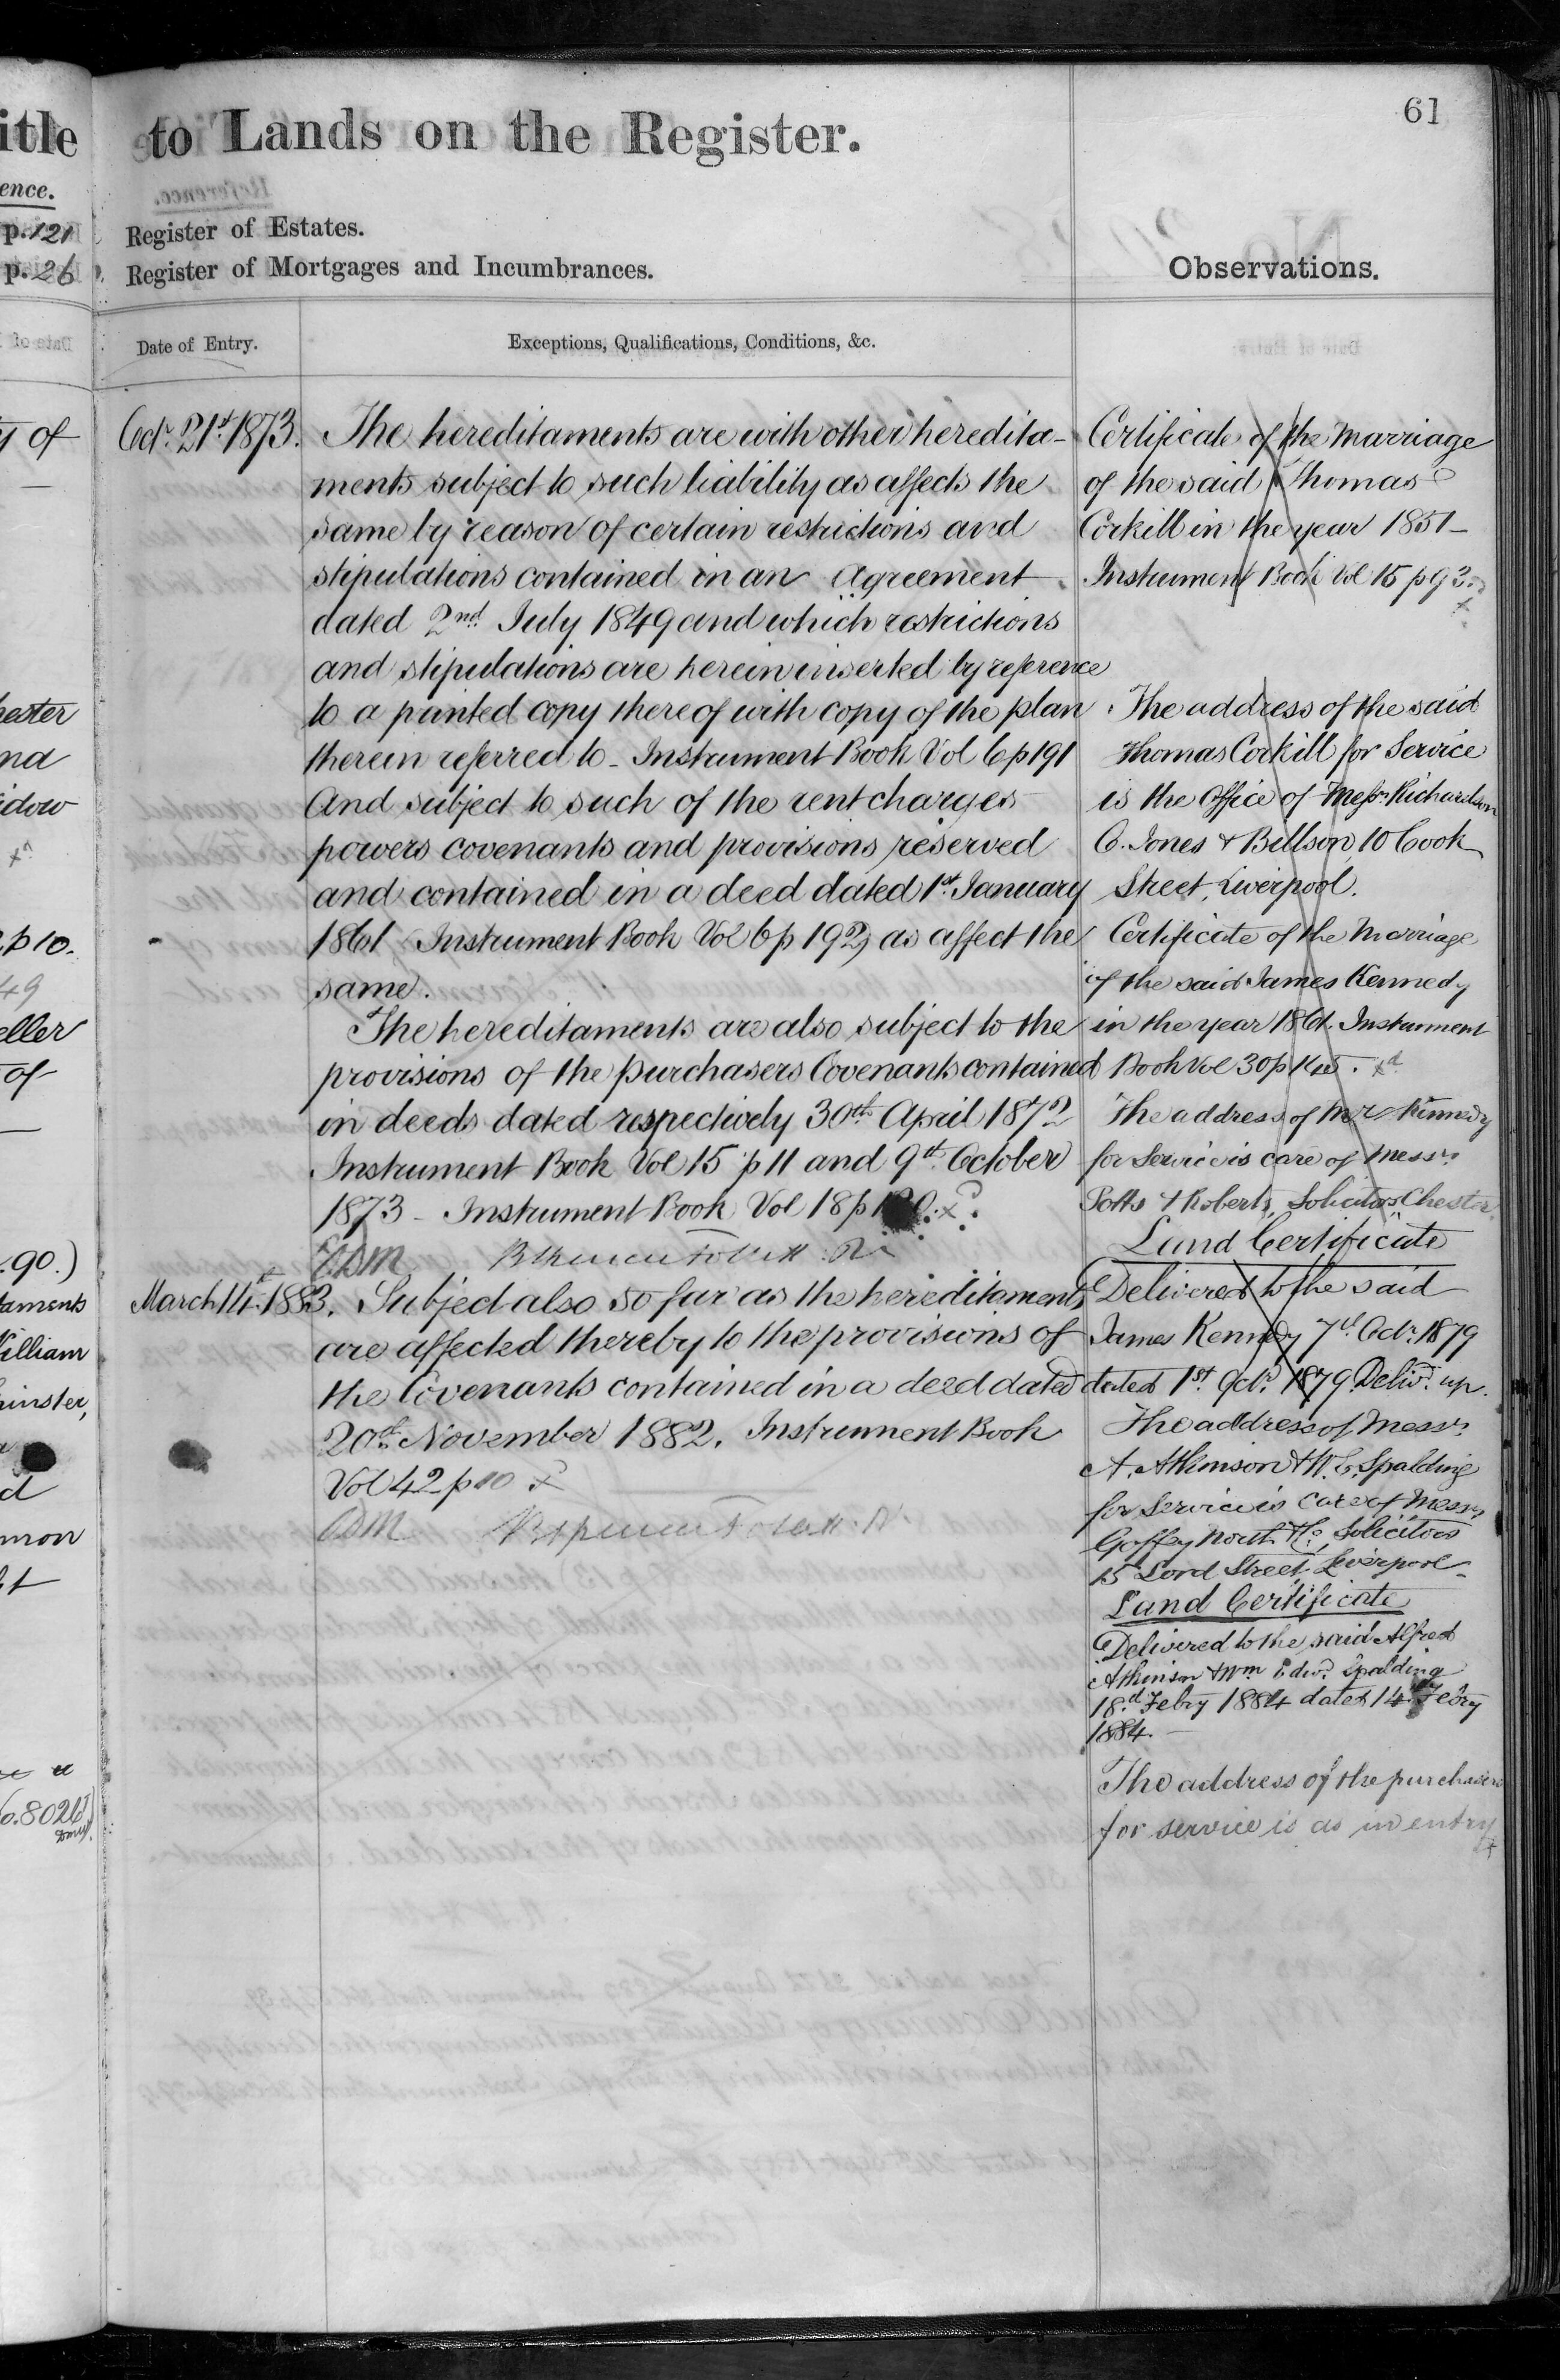 itle
ence.
p. 121
p. 26
y of
hester
nd
idow
p 10.
49
eller
of
.90.)
taments
William
minster,
d
mon
o. 8026
61
to Lands on the Register.
Register of Estates.
Register of Mortgages and Incumbrances.
Observations.
Date of Entry.
Exceptions, Qualifications, Conditions, &c.
Octr. 21st. 1873.
The hereditaments are with other heredita-
ments subject to such liability as affects the
same by reason of certain restrictions and
stipulations contained in an Agreement
dated 2nd. July 1849 and which restrictions
and stipulations are herein inserted by reference
to a printed copy thereof with copy of the plan
therein referred to - Instrument Book Vol 6 p 191
And subject to such of the rent charges
powers covenants and provisions reserved
and contained in a deed dated 1st. January
1861 (Instrument Book Vol 6 p 192) as affect the
same.
The hereditaments are also subject to the
provisions of the purchasers Covenants contained
in deeds dated respectively 30th April 1872
Instrument Book Vol 15 p 11 and 9th. October
1873 - Instrument Book Vol 18 p
March 14th. 1883.
Subject also so far as the hereditaments
are affected thereby to the provisions of
the Covenants contained in a deed dated
20th. November 1882. Instrument Book
Vol 42 p 10
Certificate of the Marriage
of the said Thomas
Corkill in the year 1851 -
Instrument Book Vol 15 p 93.
The address of the said
Thomas Corkill for Service
is the Office of Messrs. Richardson
O. Jones & Billson, 10 Cook
Street, Liverpool.
Certificate of the Marriage
of the said James Kennedy
in the year 1861. Instrument
Book Vol 30 p
The address of Mr Kennedy
for Service is care of Messrs.
Potts & Roberts, Solicitors Chester.
Land Certificate
Delivered to the said
James Kennedy 7th. Octr. 1879
dated 1st. Octr. 1879. Delivd. up.
The address of Messrs.
A. Atkinson & W. E. Spalding
for Service is care of Messrs.
North & Co., Solicitors
15 Lord Street, Liverpool -
Land Certificate
Delivered to the said Alfred
Atkinson & Wm Edwd. Spalding
18th Febry 1884 dated 14th Febry
1884. -
The address of the purchasers
for service is as in entry